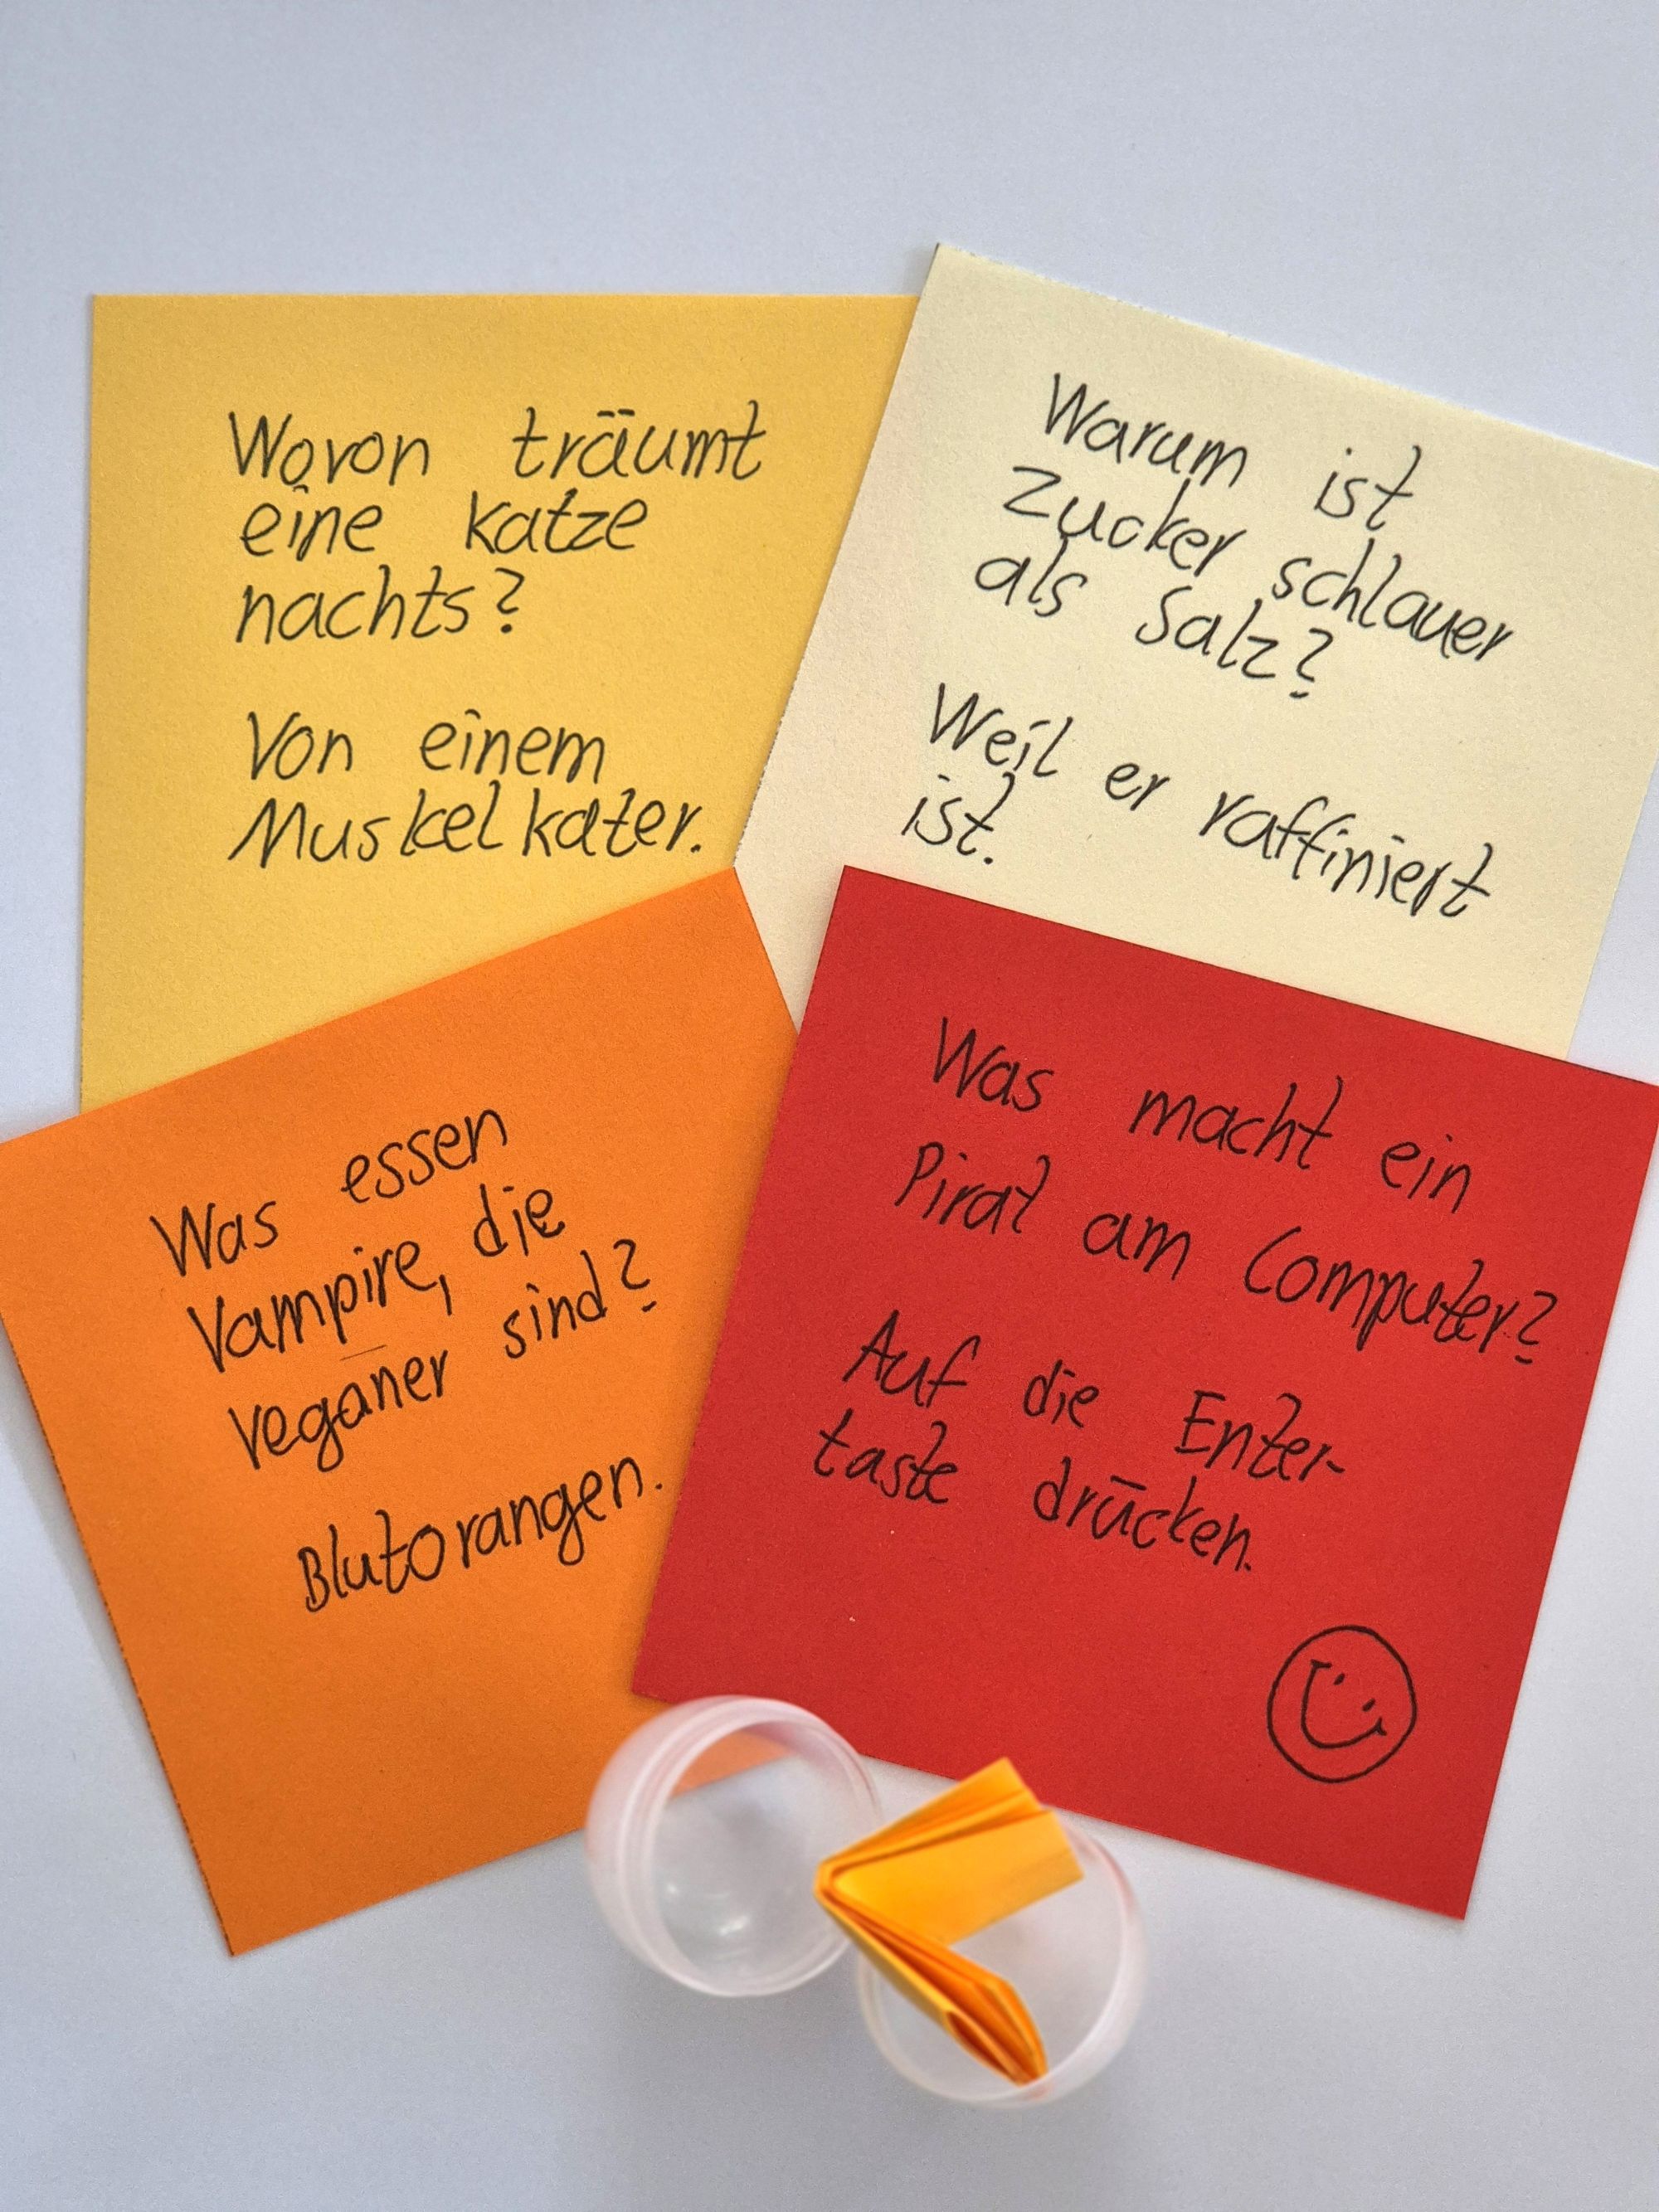 Wovon träumt
eine Katze
nachts?
Von einem
Muskelkater.
Warum ist
Zucker schlauer
als Salz?
Weil er raffiniert
ist.
Was essen
Vampire, die
veganer sind?
Blutorangen.
Was macht ein
Pirat am Computer?
Auf die Enter-
taste drücken.